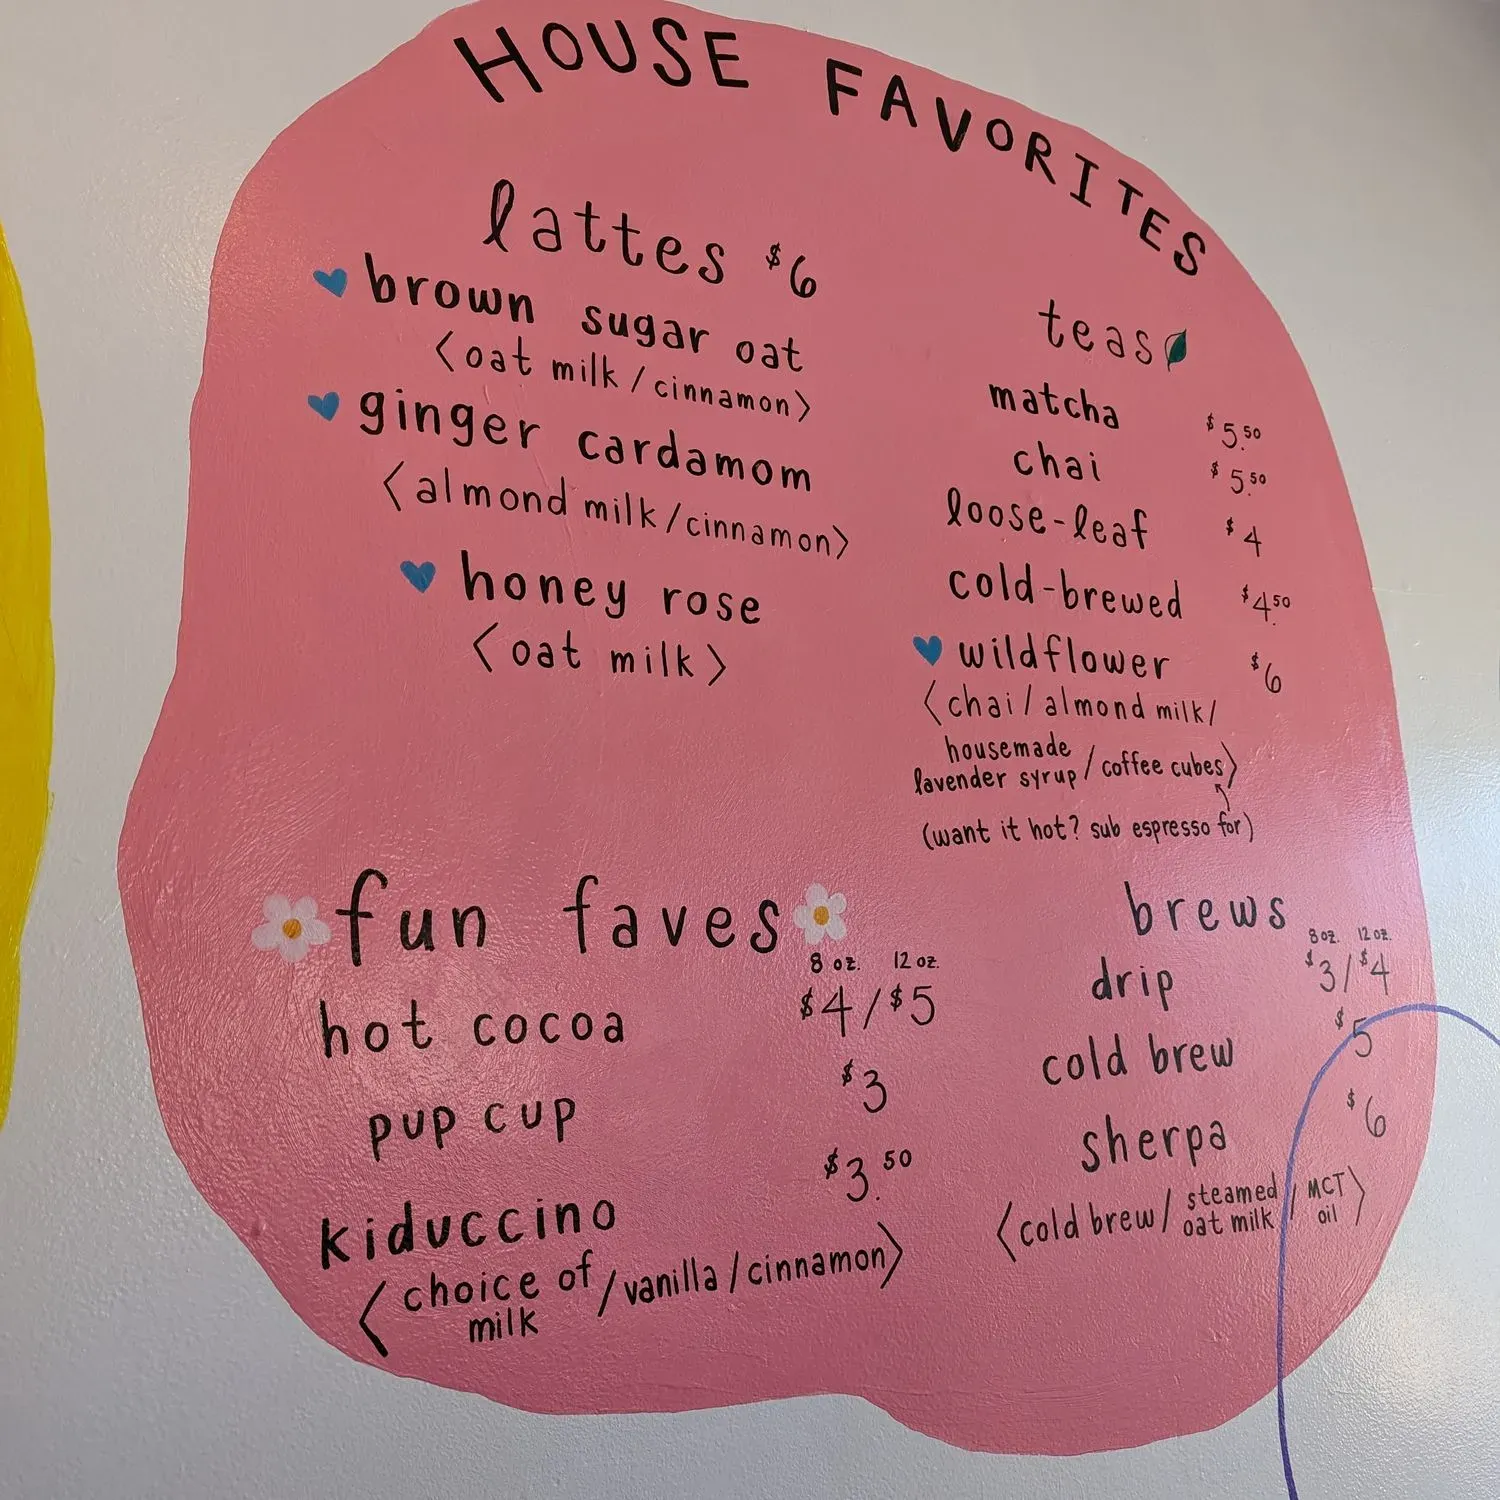 HOUSE FAVORITES
lattes $6
brown sugar oat
<oat milk/cinnamon>
ginger cardamom
<almond milk/cinnamon>
honey rose
<oat milk>
teas
matcha $5.50
chai $5.50
loose-leaf $4
cold-brewed $4.50
wildflower $6
<chai/almond milk/
housemade
lavender syrup/coffee cubes>
(want it hot? sub espresso for)
fun faves
8 oz. 12 oz.
hot cocoa $4/$5
pup cup $3
kiduccino $3.50
<choice of milk/vanilla/cinnamon>
brews
8 oz. 12 oz.
drip $3/$4
cold brew $5
sherpa $6
<cold brew/steamed oat milk/MCT oil>